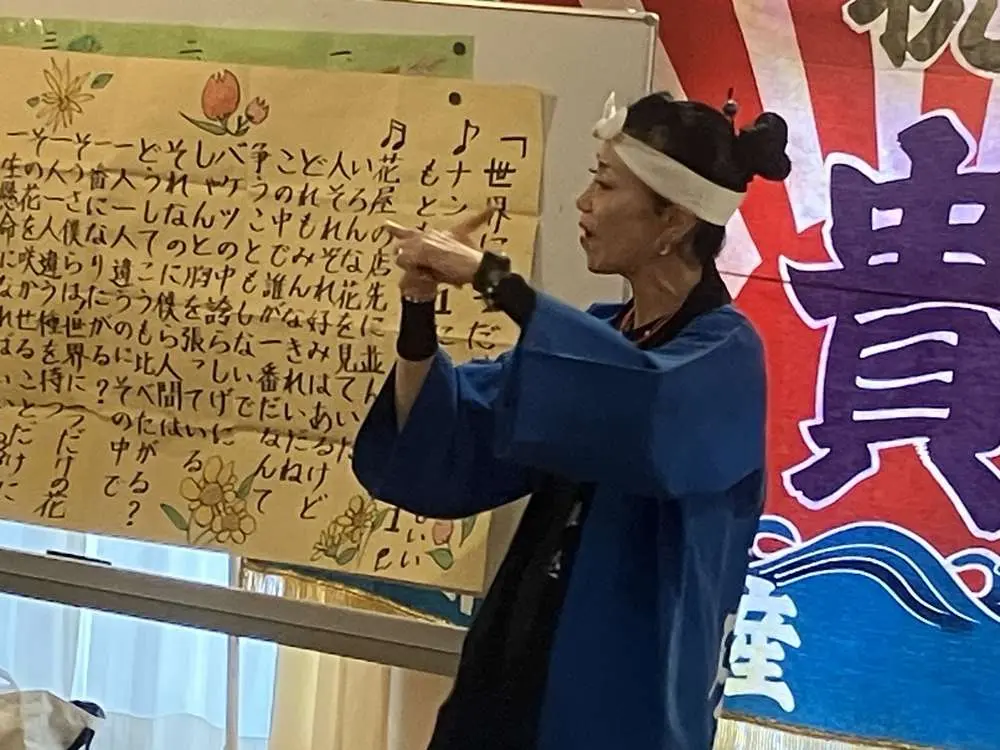 「世界に
ナン
もと
花屋の店先に並ん
いろんな花を見ていた
人それぞれ好みはあるけど
どれもみんなきれいだね
この中で誰が一番だなんて
争うこともしないで
バケツの中誇らしげに
しゃんと胸を張っている
それなのに僕ら人間は
どうしてこうも比べたがる?
一人一人違うのにその中で
一番になりたがる?
そうさ僕らは世界に一つだけの花
一人一人違う種を持つ
その花を咲かせることだけに
一生懸命になれば
祝
貴
産